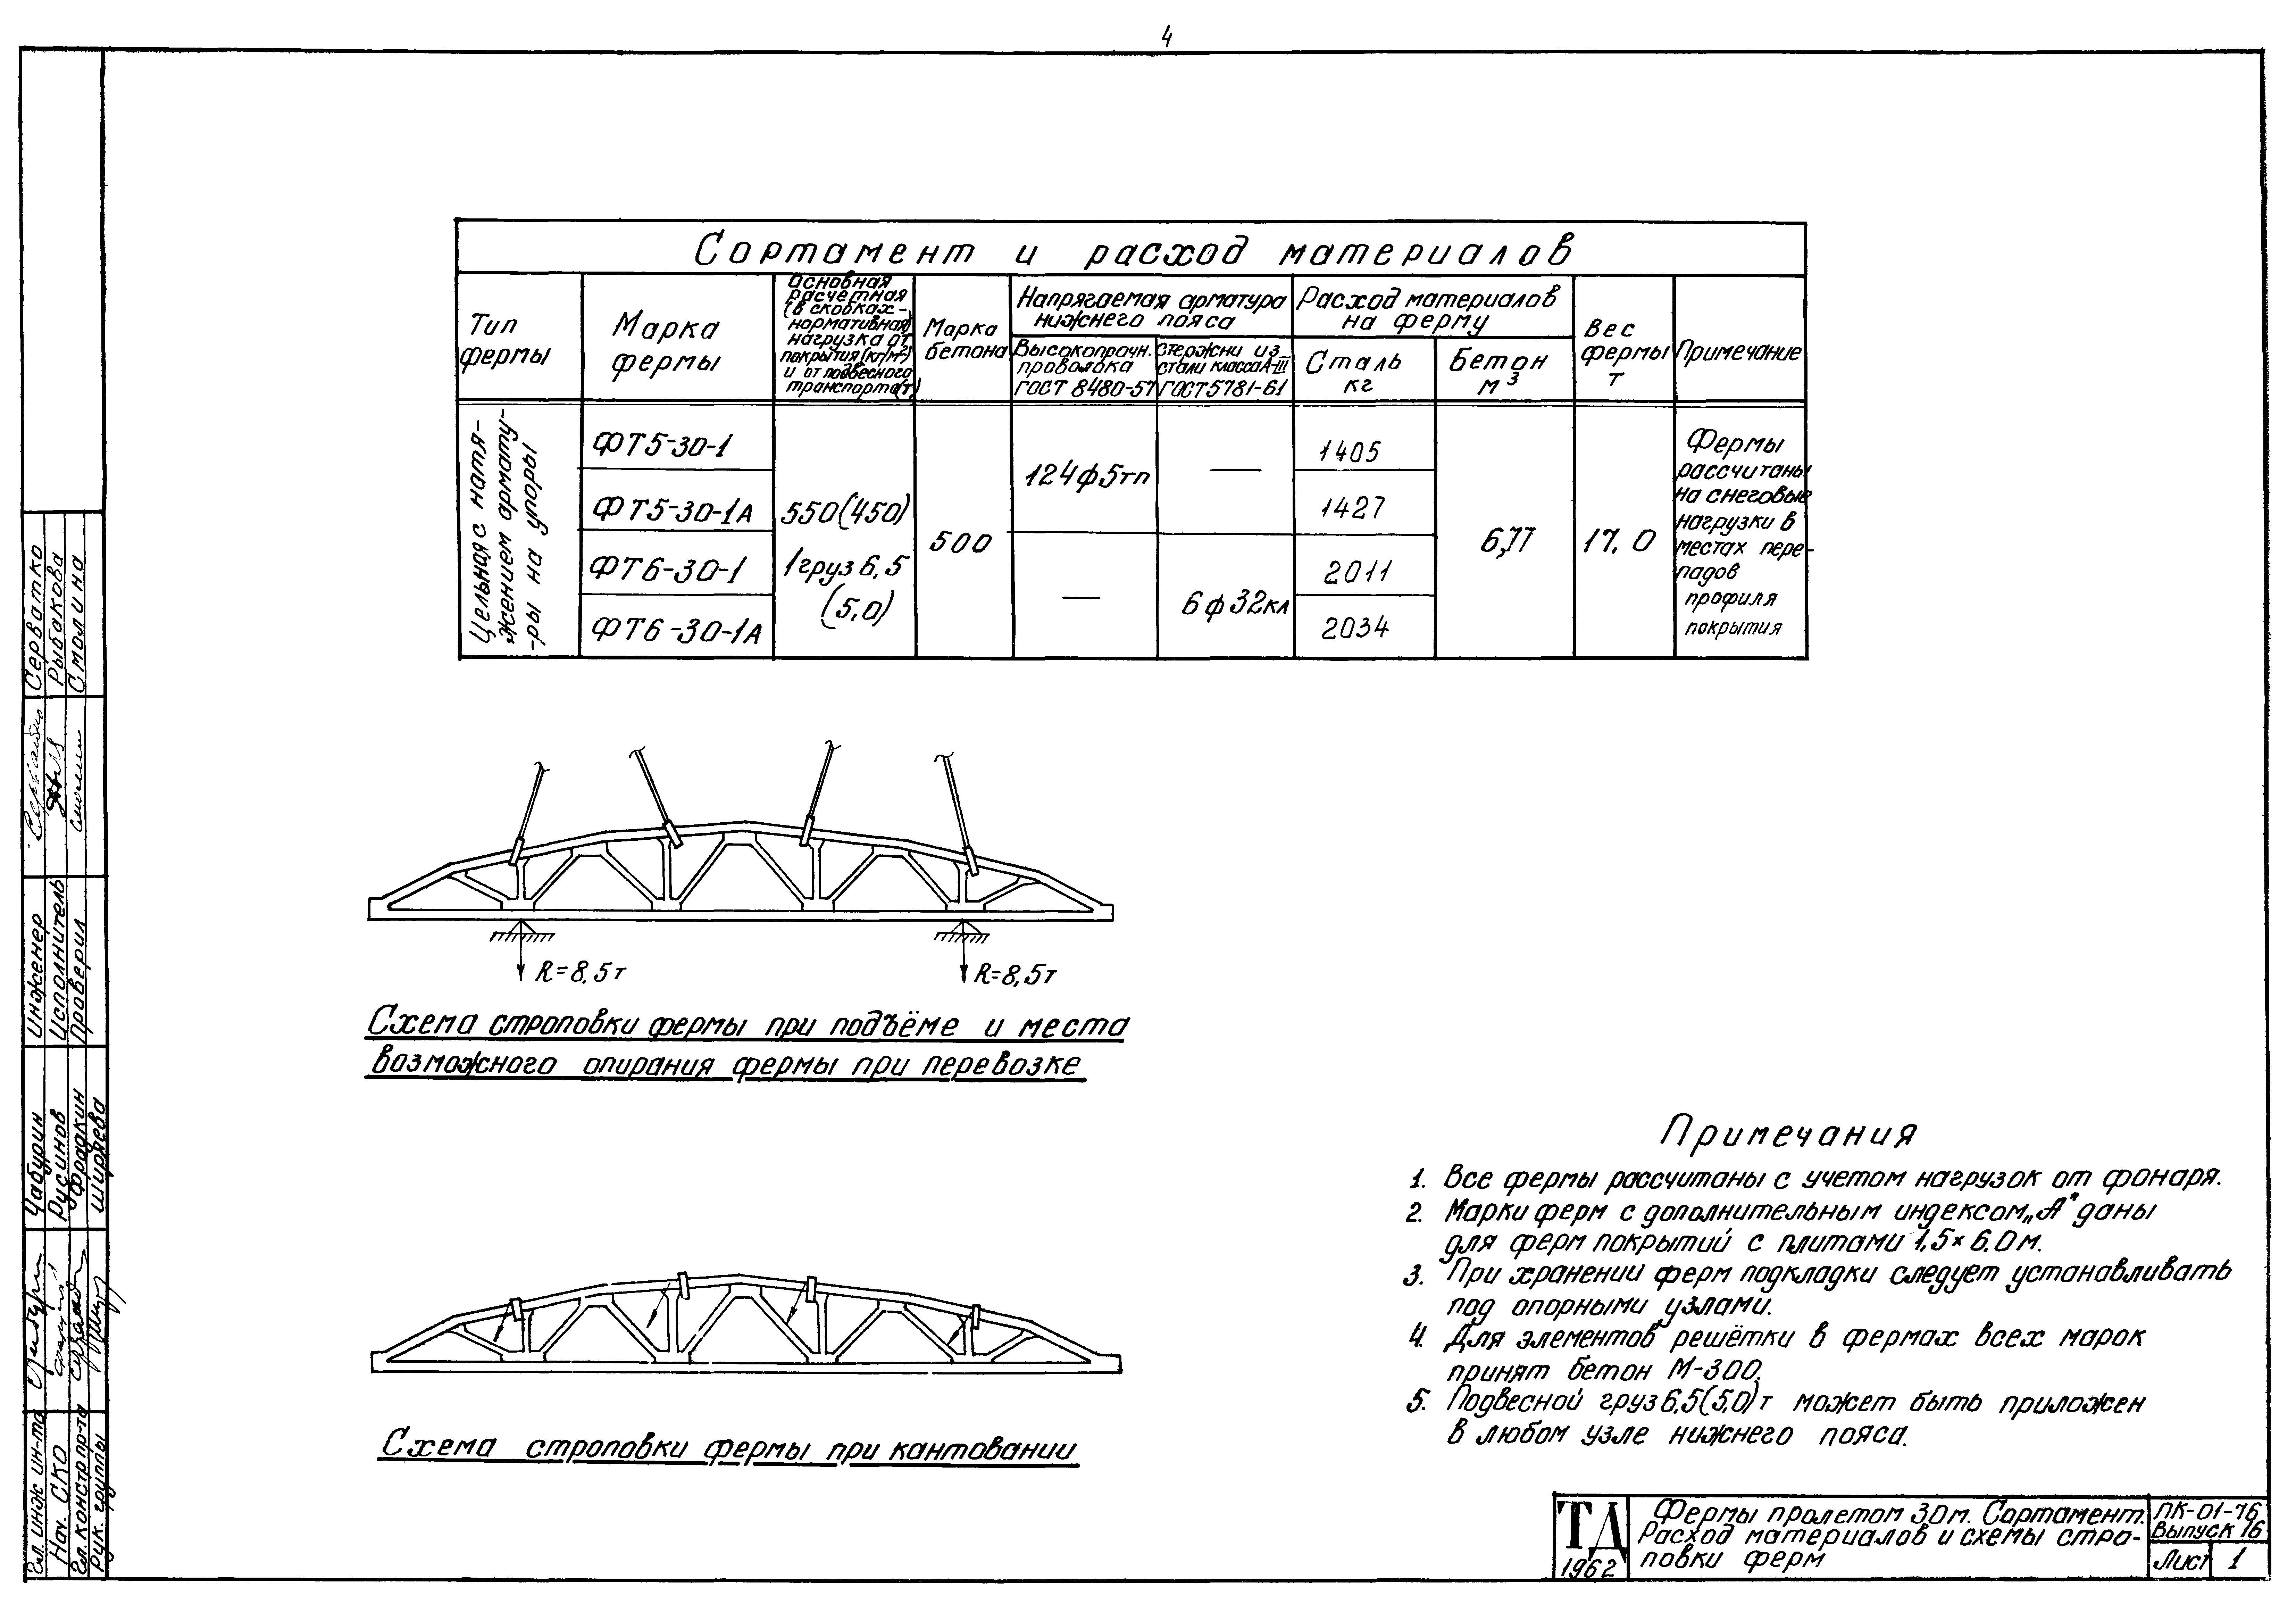 4
Сортамент и расход материалов
Тип
фермы
Марка
фермы
Основная
расчетная
(в скобках -
нормативная)
нагрузка от
покрытия (кг/м²)
и от подвесного
транспорта (т)
Марка
бетона
Напрягаемая арматура
нижнего пояса
Высокопрочн.
проволока
ГОСТ 8480-57
Стержни из
стали класса А-III
ГОСТ 5781-61
Расход материалов
на ферму
Сталь
кг
Бетон
м³
Вес
фермы
т
Примечание
Цельная с натя-
жением армату-
-ры на упоры
ФТ5-30-1
ФТ5-30-1А
ФТ6-30-1
ФТ6-30-1А
550(450)
1груз 6,5
(5,0)
500
124ф5тп
—
—
6ф32кл
1405
1427
2011
2034
6,77
17,0
Фермы
рассчитаны
на снеговые
нагрузки в
местах пере-
падов
профиля
покрытия
R=8,5т
R=8,5т
Схема строповки фермы при подъёме и места
возможного опирания фермы при перевозке
Схема строповки фермы при кантовании
Примечания
1. Все фермы рассчитаны с учетом нагрузок от фонаря.
2. Марки ферм с дополнительным индексом „А" даны
для ферм покрытий с плитами 1,5×6,0м.
3. При хранении ферм подкладки следует устанавливать
под опорными узлами.
4. Для элементов решётки в фермах всех марок
принят бетон М-300.
5. Подвесной груз 6,5(5,0)т может быть приложен
в любом узле нижнего пояса.
ТД
1962
Фермы пролетом 30м. Сортамент.
Расход материалов и схемы стро-
повки ферм
ПК-01-76
Выпуск 16
Лист 1
Гл. инж ин-та
Чабурин
Инженер
Серватко
Нач. СКО
Русинов
Исполнитель
Рыбакова
Гл. констр пр-та
Фрадкин
Проверил
Смолина
Рук. группы
Ширяева